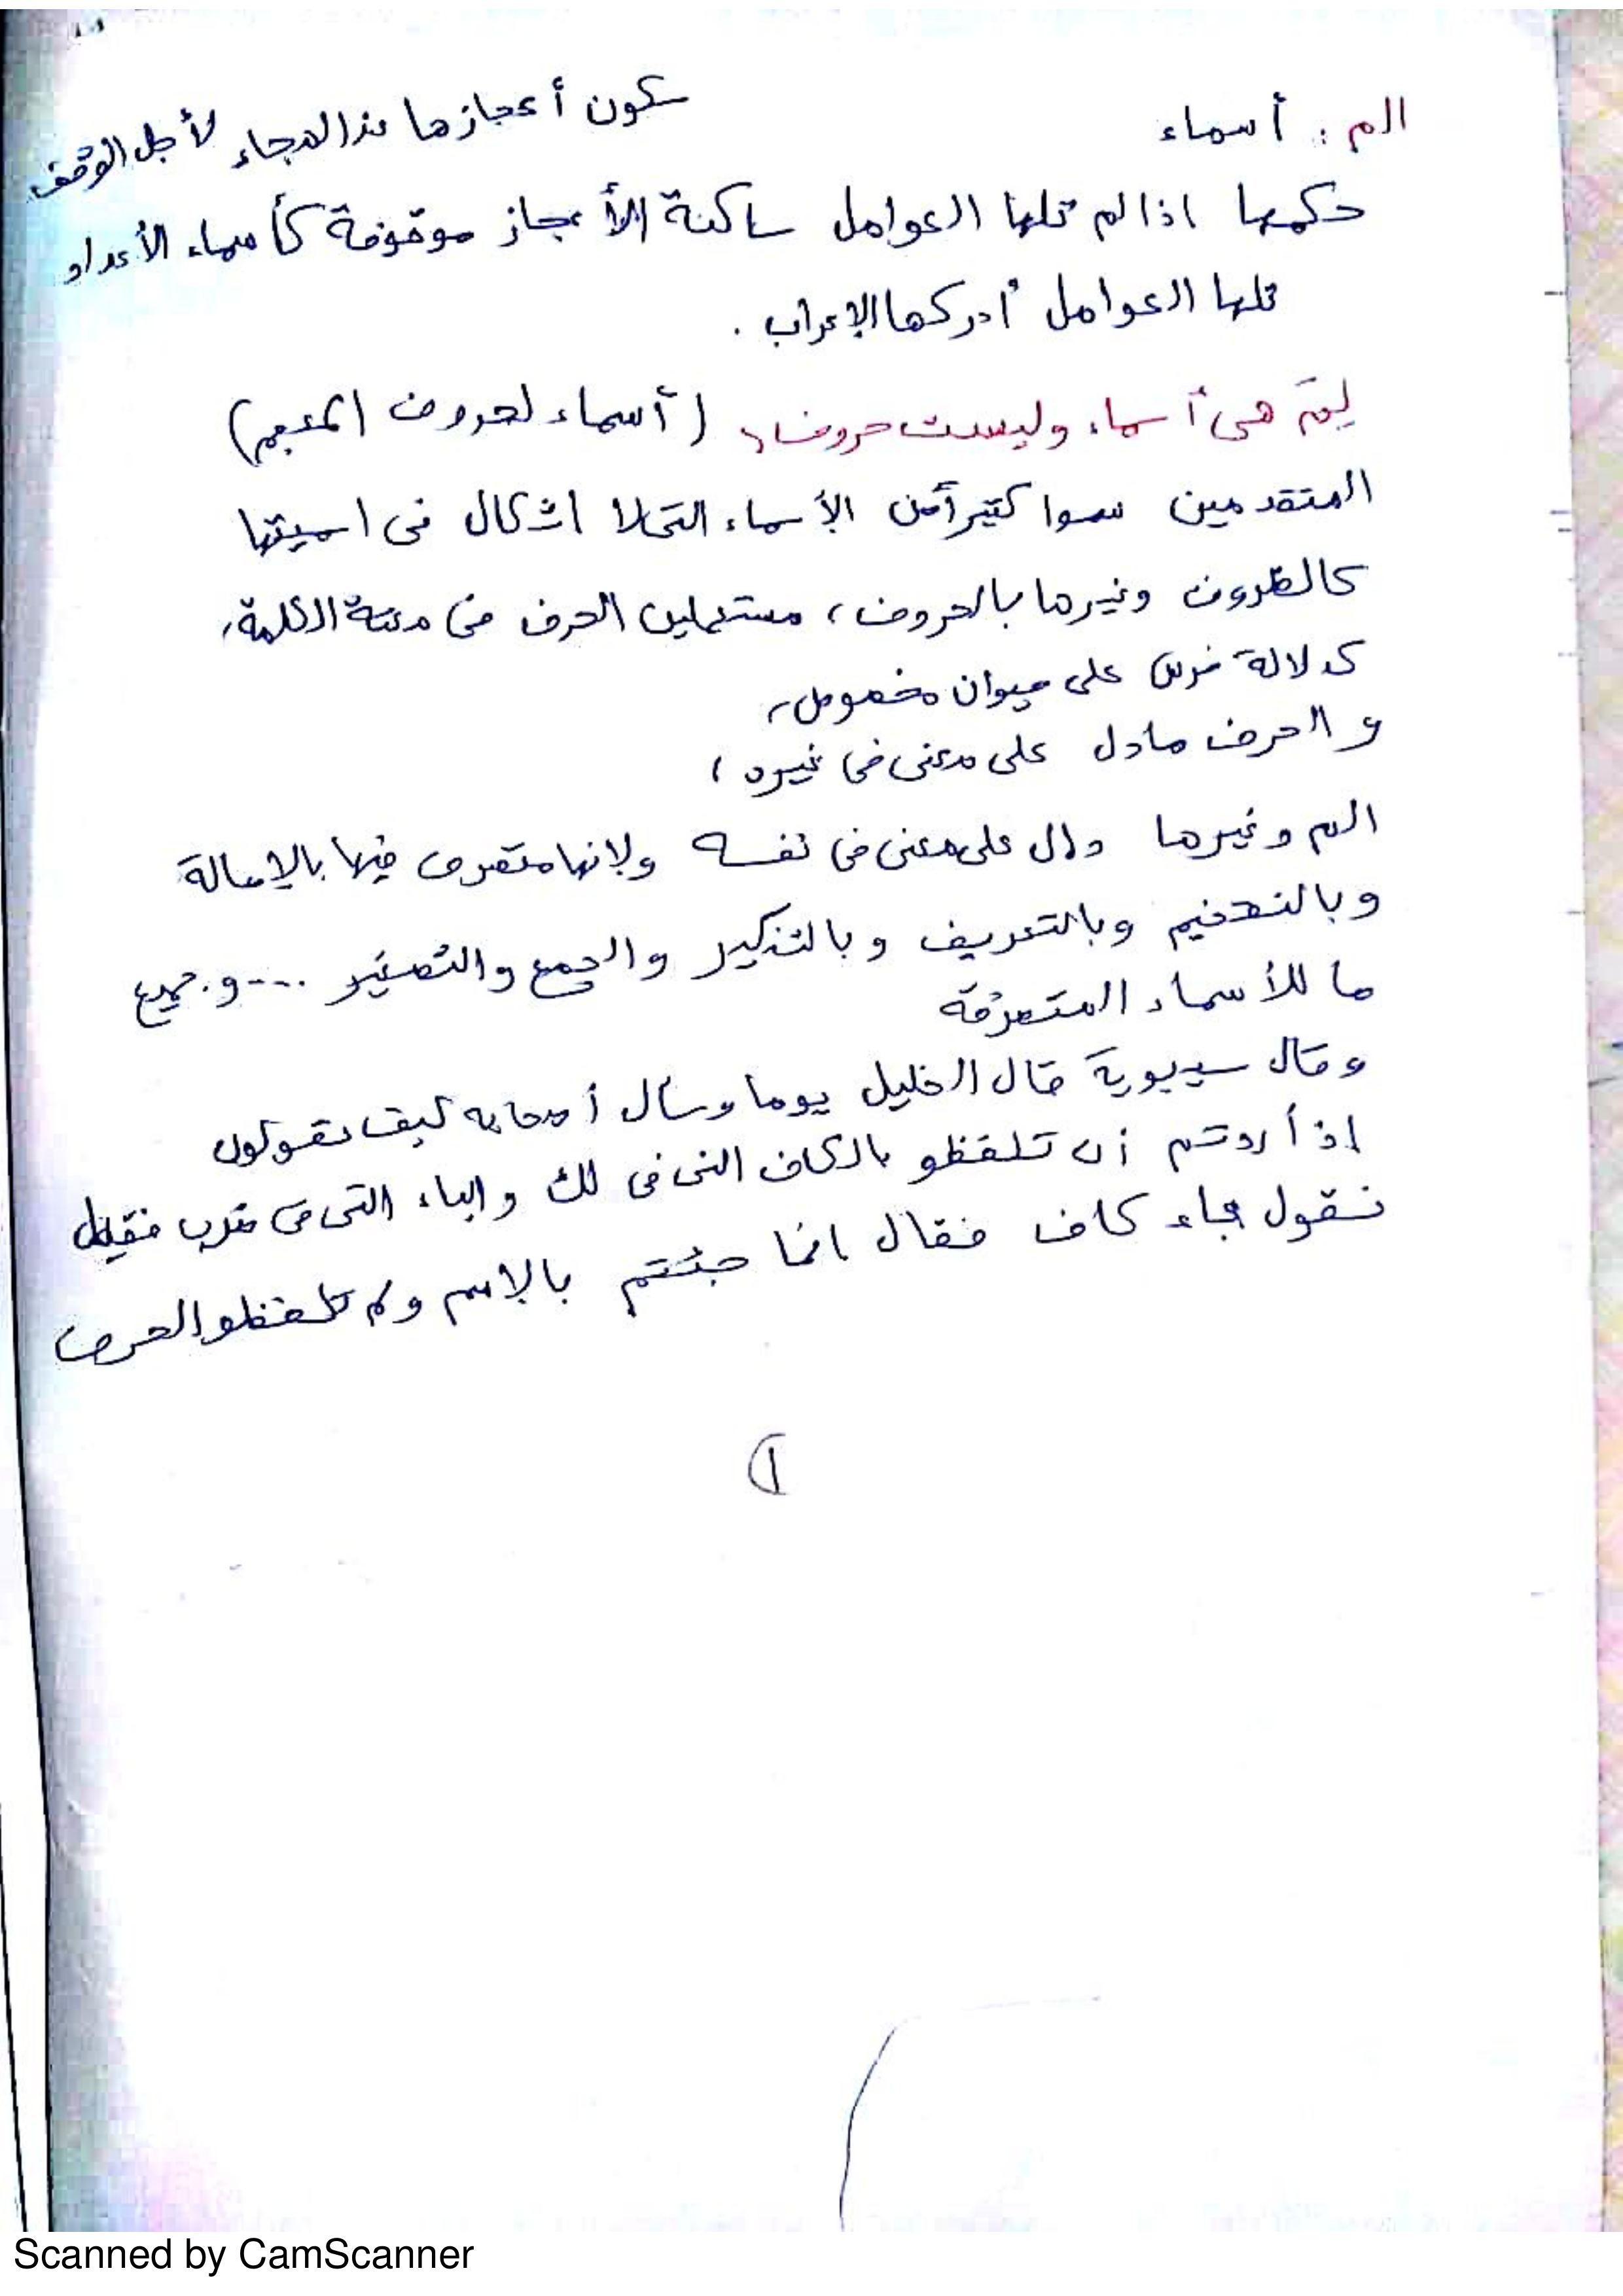 الم : أسماء سكون أعجازها عند الهجاء لأجل الوقف
حكمها اذا لم تلها العوامل ساكنة الأعجاز موقوفة كأسماء الأعداد
تلها العوامل أدركها الإعراب .
لِمَ هي أسماء وليست حروفا؟ (أسماء لحروف المعجم)
المتقدمين سموا كثيرأمن الأسماء التى لا اشكال فى اسميتها
كالظروف وغيرها بالحروف، مستعملين الحرف فى معنى الكلمة،
كدلالة فرس على حيوان مخصوص،
و الحرف مادل على معنى فى غيره ،
الم وغيرها دال على معنى فى نفسه ولانها متصرف فيها بالإمالة
وبالتفخيم وبالتعريف وبالتنكير والجمع والتصغير ---- وجميع
ما للأسماء المتصرفة
وقال سيبويه قال الخليل يوما وسأل أصحابه كيف تقولون
إذا أردتم أن تلفظو بالكاف التى فى لك والباء التى فى ضرب فقيل
نقول باء كاف فقال انما جئتم بالاسم ولم تلفظو الحرف
١
Scanned by CamScanner